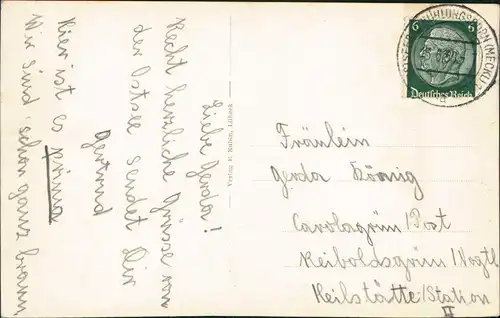 Liebe Gerda!
Recht herzliche Grüsse von
der Ostsee sendet Dir
Gertrud
Hier ist es prima
Wir sind schon ganz braun
Verlag R. Lübeck
6 6
Deutsches Reich
OSTSEEBAD KÜHLUNGSBORN (MECKL)
Fräulein
Gerda König
Carolagrün/Post
Reiboldsgrün/Vogtl
Heilstätte/Station
II